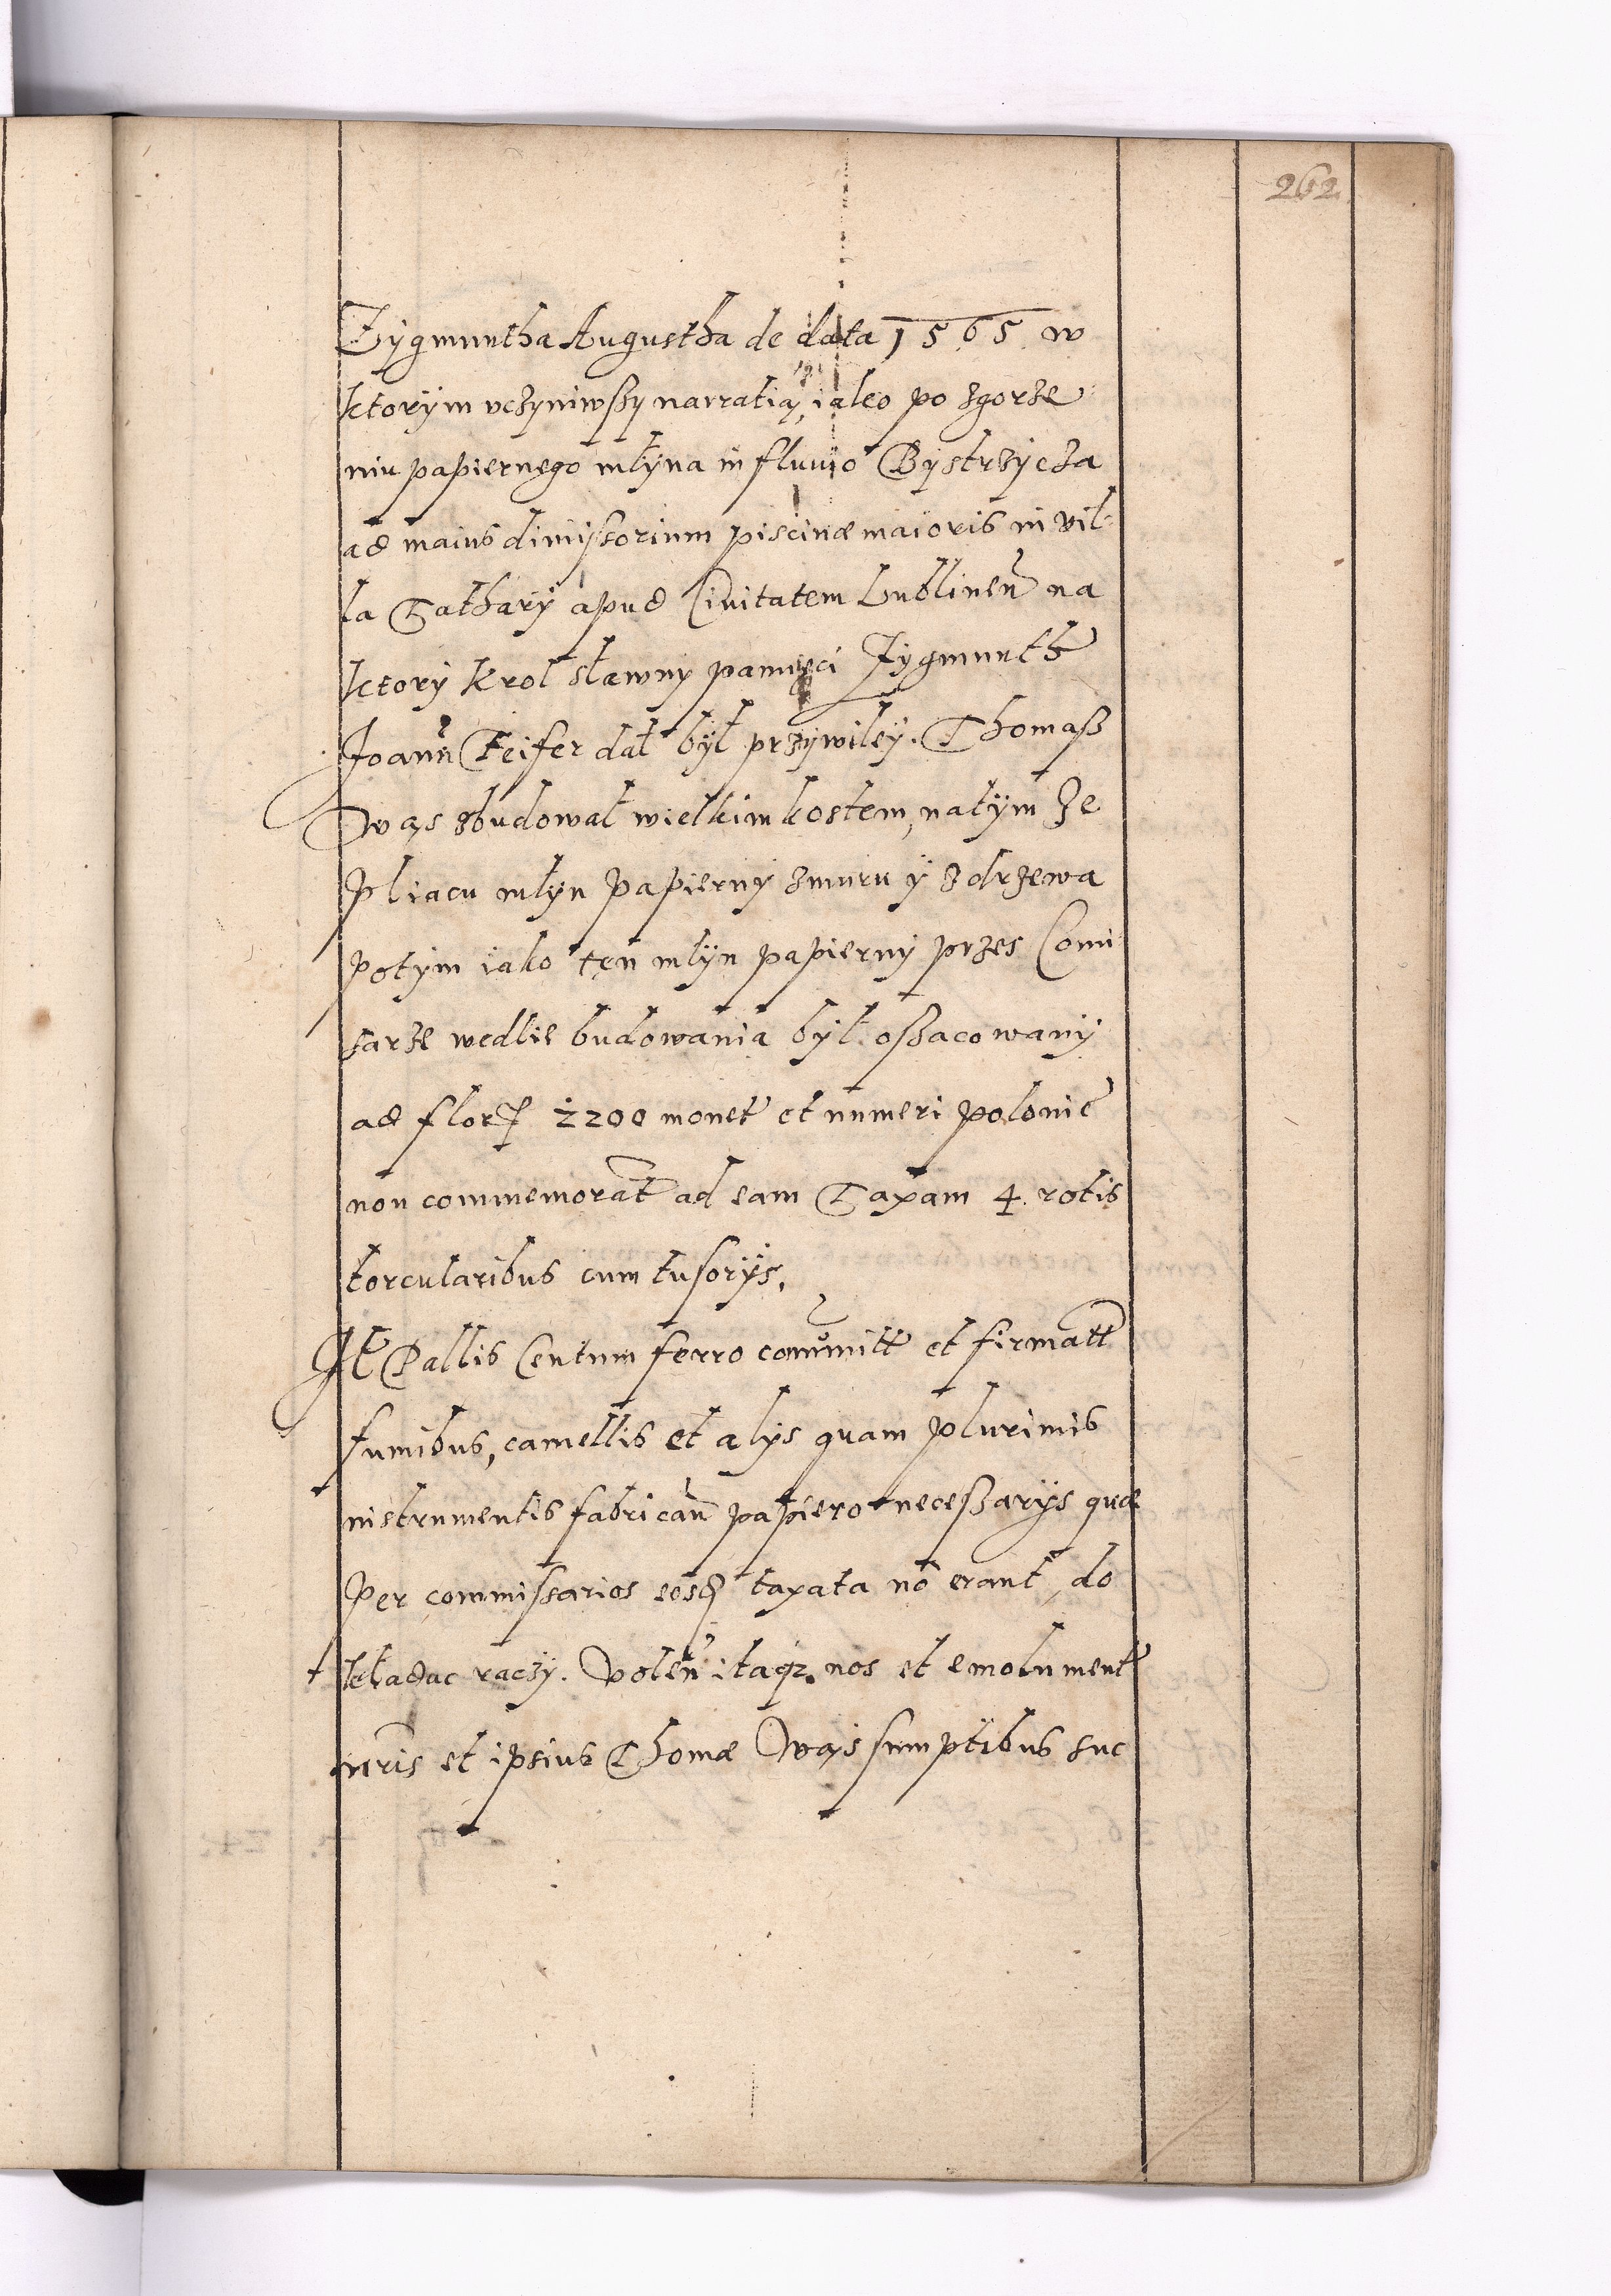 262
Zygmuntha Augustha de data 1565 w
ktorym vczyniwszy narratią, iako po zgorze
niu papiernego młyna in fluuio Bystrzycza
ad maius dimissorium piscinæ maioris in vil-
la Tathary apud Ciuitatem Lublineñ na
ktory Krol sławny pamięci Zygmunth
Joann Feifer dał był przywiley. Thomasz
Ways zbudował wielkim kostem, na tym ze
pliacu młyn papierny z muru y z drzewa
potym iako ten młyn papierny przes Comi
sarze wedlie budowania był oszacowany
ad flor 2200 monet et numeri polonic
non commemorat ad eam Taxam 4. rotis
torcularibus cum tusorijs.
It Pallis Centum ferro communitt et firmatt
funibus, camellis et alijs quam plurimis
instrumentis fabricañ papiero necessarijs quæ
per commissarios eosd taxata nō erant do
kładac raczy. Voleñ itaqz nos et emolument
nris et ipsius Thomæ Ways sumptibus suc